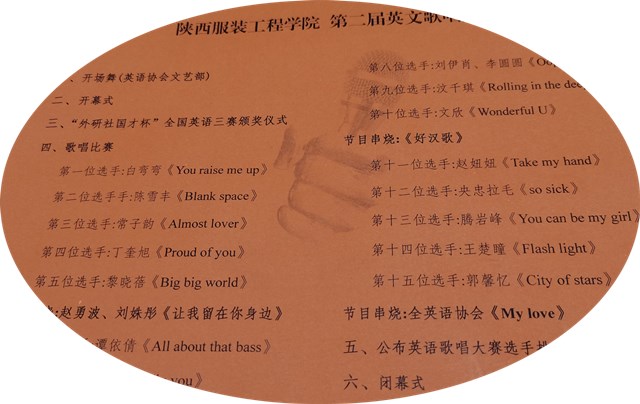 陕西服装工程学院 第二届英文歌唱
、开场舞(英语协会文艺部)
二、开幕式
三、“外研社国才杯”全国英语三赛颁奖仪式
四、歌唱比赛
第一位选手:白弯弯《You raise me up》
第二位选手:陈雪丰《Blank space》
第三位选手:常子韵《Almost lover》
第四位选手:丁奎旭《Proud of you》
第五位选手:黎晓蓓《Big big world》
:赵勇波、刘姝彤《让我留在你身边》
谭依倩《All about that bass》
you》
第八位选手:刘伊肖、李圆圆《
第九位选手:汶千琪《Rolling in the dee
第十位选手:文欣《Wonderful U》
节目串烧:《好汉歌》
第十一位选手:赵妞妞《Take my hand》
第十二位选手:央忠拉毛《so sick》
第十三位选手:腾岩峰《You can be my girl》
第十四位选手:王楚曈《Flash light》
第十五位选手:郭馨忆《City of stars》
节目串烧:全英语协会《My love》
五、公布英语歌唱大赛选手
六、闭幕式